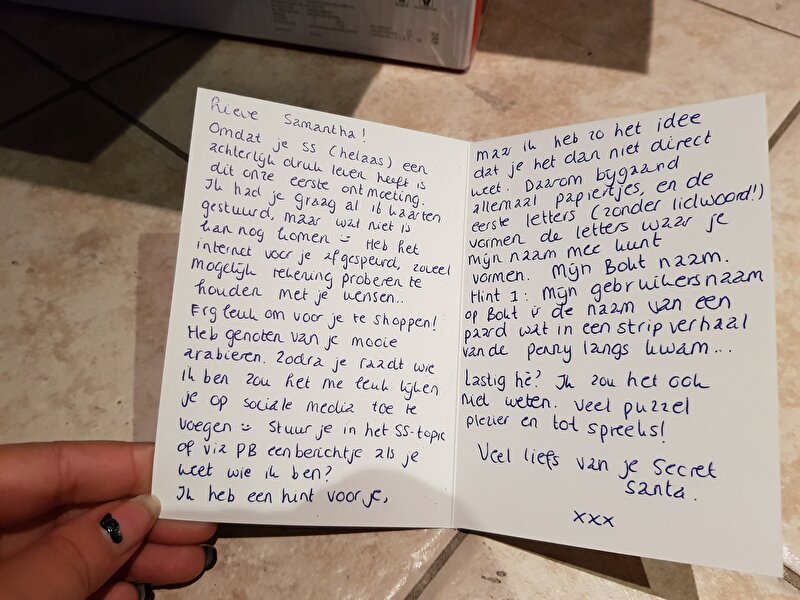 Lieve Samantha!
Omdat je SS (helaas) een
achterlijk druk leven heeft is
dit onze eerste ontmoeting.
Ik had je graag al 16 kaarten
gestuurd, maar wat niet is
kan nog komen :) Heb het
internet voor je afgespeurd, zoveel
mogelijk rekening proberen te
houden met je wensen..
Erg leuk om voor je te shoppen!
Heb genoten van je mooie
arabieren. Zodra je raadt wie
ik ben zou het me leuk lijken
je op sociale media toe te
voegen :) Stuur je in het SS-topic
of via PB een berichtje als je
weet wie ik ben?
Ik heb een hint voor je,
maar ik heb zo het idee
dat je het dan niet direct
weet. Daarom bijgaand
allemaal papiertjes, en de
eerste letters (zonder lidwoord!)
vormen de letters waar je
mijn naam mee kunt
vormen. Mijn Bokt naam.
Hint 1: Mijn gebruikersnaam
op Bokt is de naam van een
paard wat in een stripverhaal
van de penny langs kwam...
Lastig hè? Ik zou het ook
niet weten. Veel puzzel
plezier en tot spreeks!
Veel liefs van je Secret
Santa.
xxx